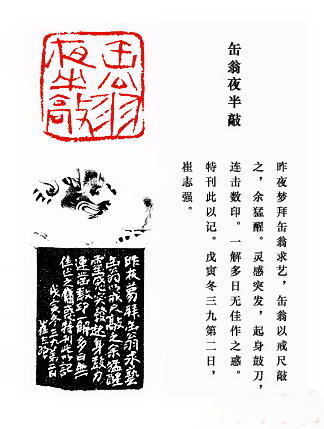 缶翁夜半敲
昨夜梦拜缶翁求艺，缶翁以戒尺敲
之，余猛醒。灵感突发，起身鼓刀，
连击数印。一解多日无佳作之惑。
特刊此以记。戊寅冬三九第二日，
崔志强。
缶翁
夜半敲
昨夜梦拜缶翁求艺
缶翁以戒尺敲之余猛醒
灵感突发起身鼓刀
连击数印一解多日无
佳作之惑特刊此以记
戊寅冬三九第二日
崔志强